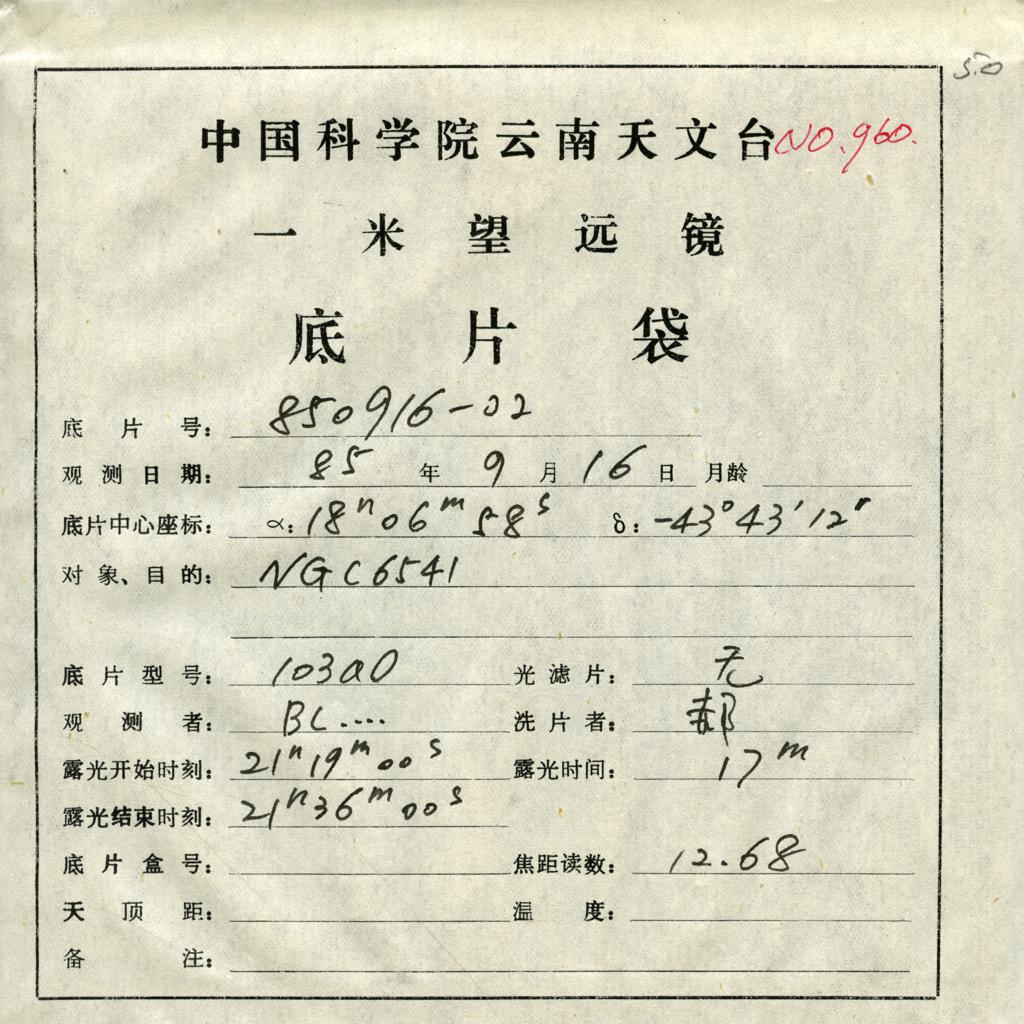 5.0
中国科学院云南天文台 NO.960.
一米望远镜
底片袋
底片号: 850916-02
观测日期: 85 年 9 月 16 日 月龄
底片中心座标: α: 18h 06m 58s δ: -43° 43' 12"
对象、目的: NGC6541
底片型号: 103aO 光滤片: 无
观测者: BL.... 洗片者: 郝
露光开始时刻: 21h 19m 00s 露光时间: 17m
露光结束时刻: 21h 36m 00s
底片盒号: 焦距读数: 12.68
天顶距: 温度:
备注: